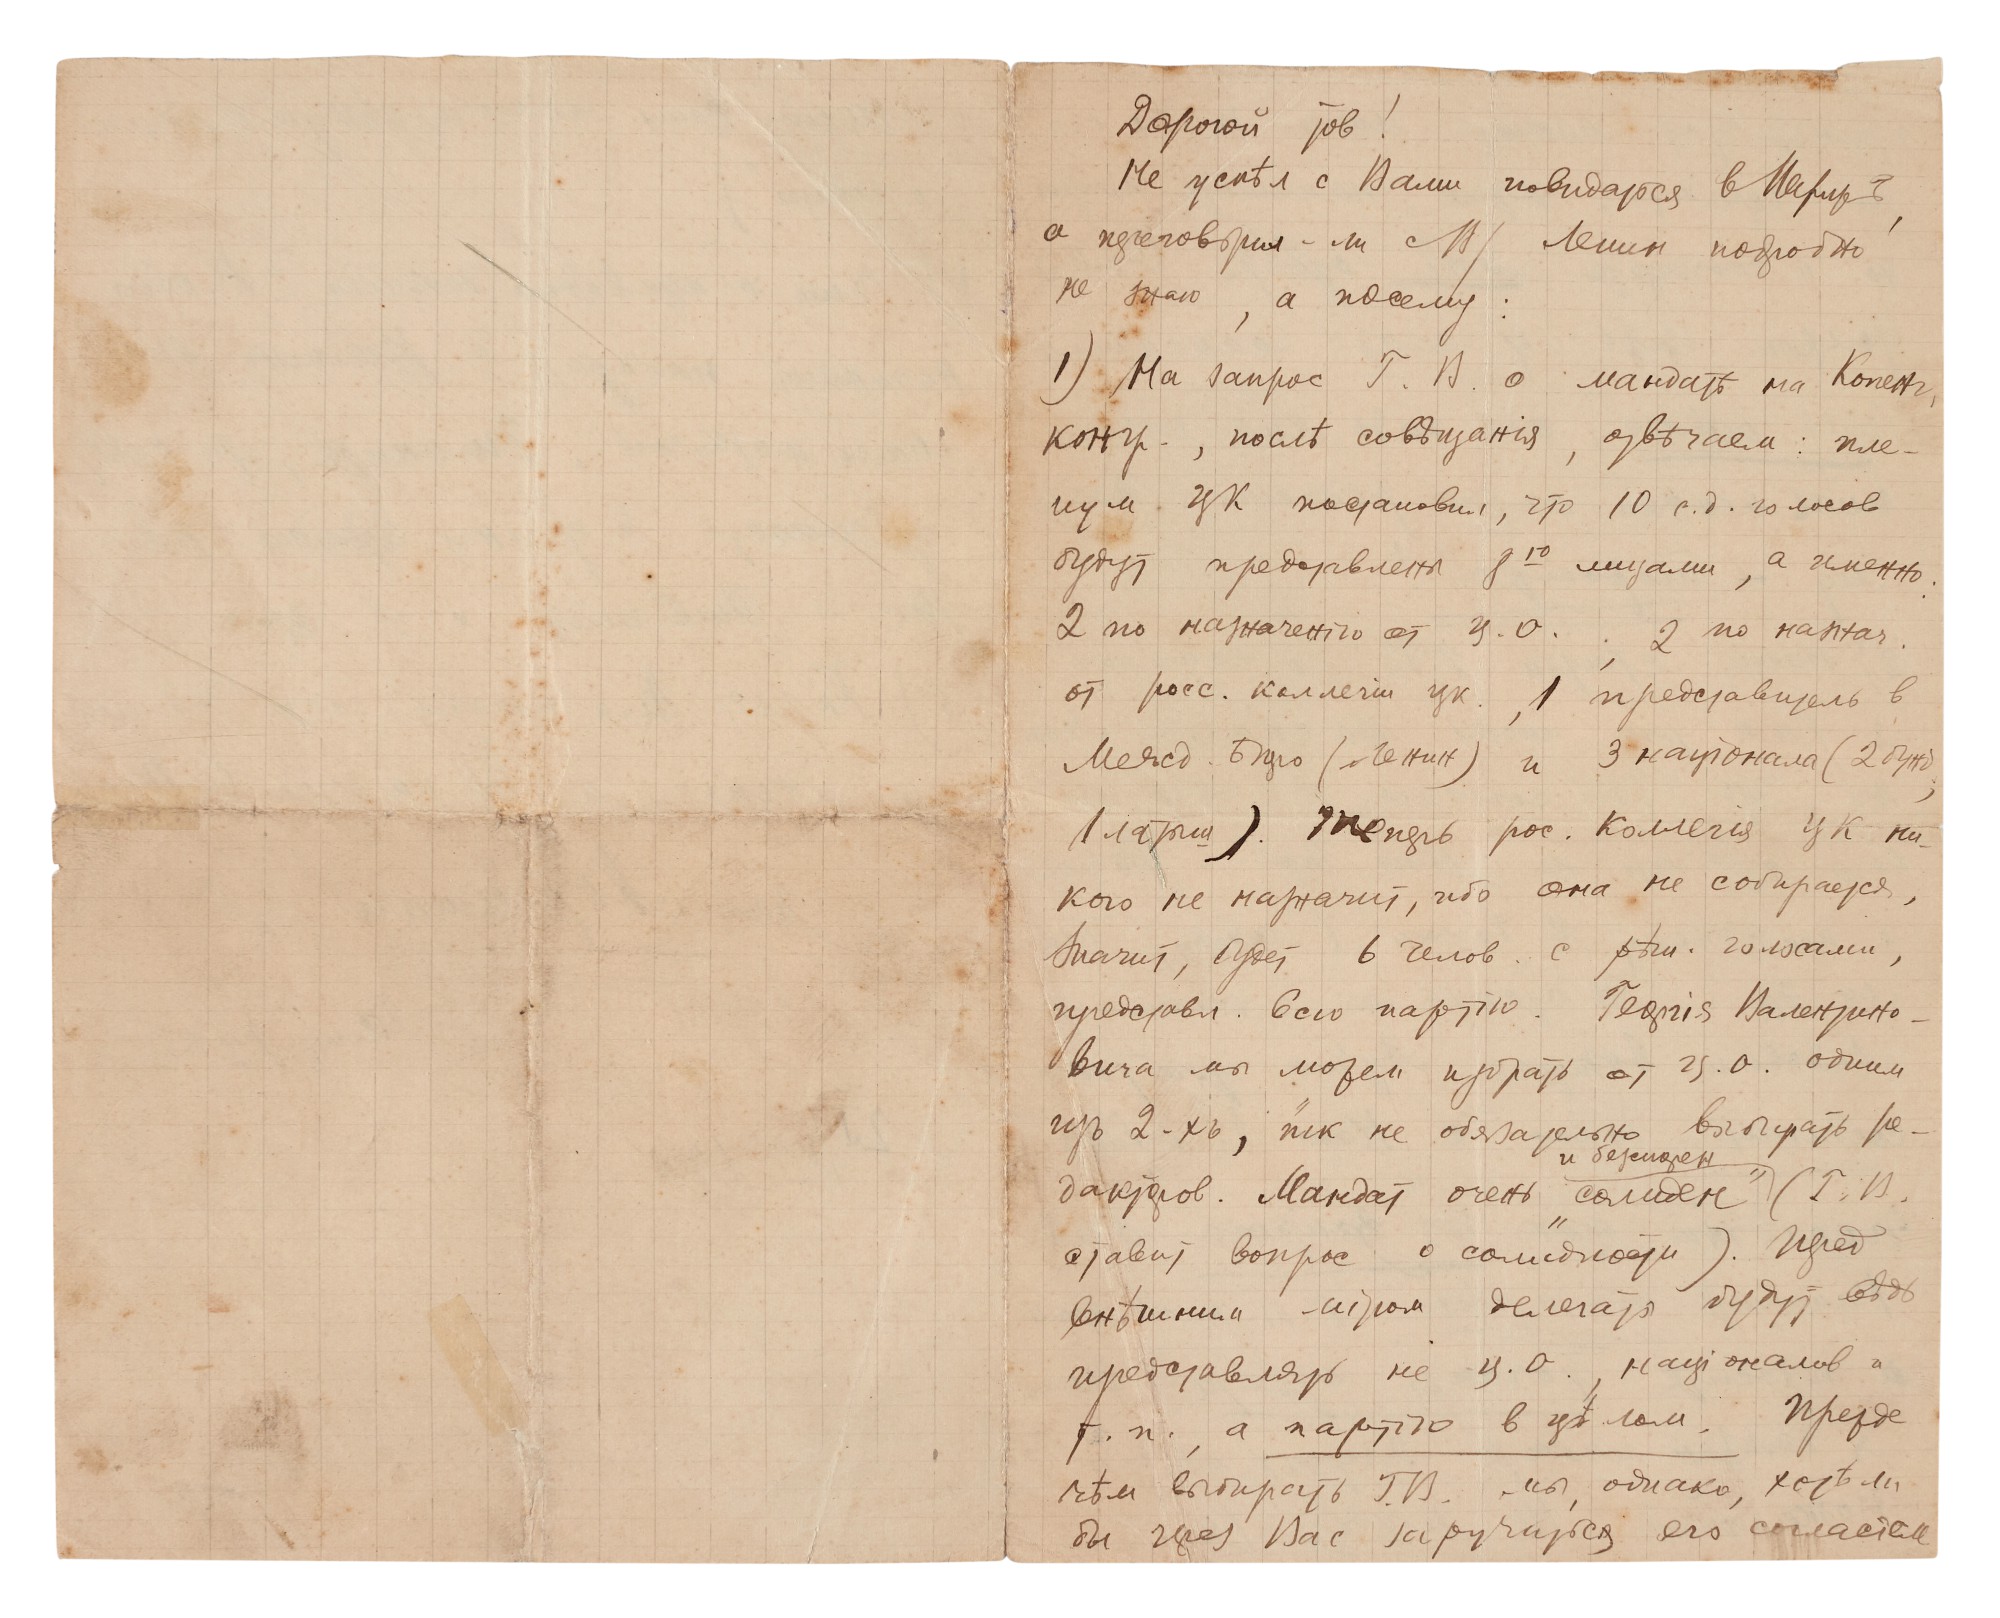 Дорогой тов!
Не успѣл с Вами повидаться в Париж ѣ,
а переговорил-ли с В/ Ленин подробно
не знаю, а посему:
1) На запрос Г. В. о мандатѣ на Копенг.
конгр., послѣ совѣщанія, отвѣчаем: пле-
нум ЦК постановил, что 10 с.д. голосов
будут представлены 8ю лицами, а именно:
2 по назначенію от Ц.О., 2 по назнач.
от росс. коллегіи ЦК., 1 представитель в
Межд. Бюро (Ленин) и 3 націонала (2 бунд,
1 латыш). Теперь рос. коллегія ЦК ни-
кого не назначит, ибо она не собирается,
значит, будет 6 челов. с рѣш. голосами,
представл. всю партію. Георгія Валентино-
вича мы можем избрать от Ц.О. одним
изъ 2-хъ, т.к не обязательно выбирать ре-
и безспорен
дакторов. Мандат очень „солиден" (Г. В.
ставит вопрос о солидности). Перед
внѣшним міром делегаты будут вѣдь
представлять не Ц.О., націоналов и
т. п., а партію в цѣлом. Прежде
чѣм выбирать Г.В. мы, однако, хотѣли
бы через Вас заручиться его согласіем